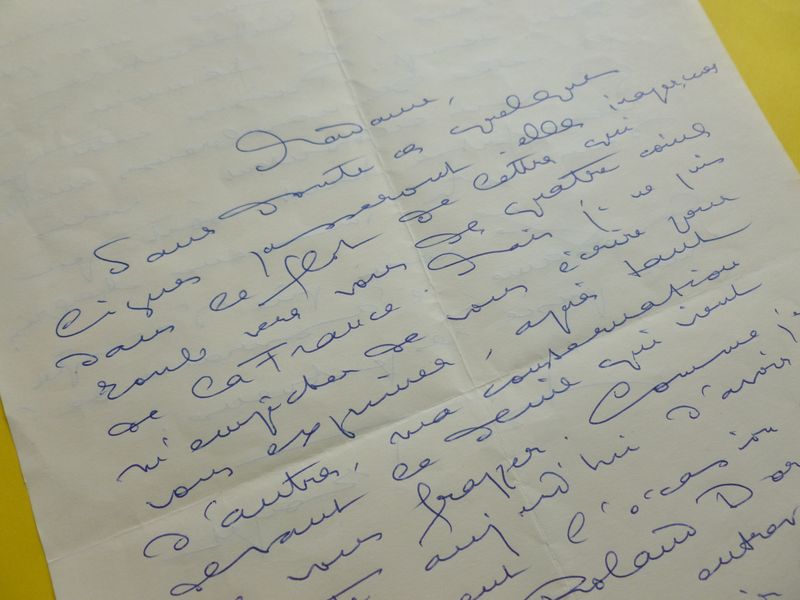 Madame,
Sans doute ces quelques
lignes passeront elles inaperçues
dans le flot de lettre qui
roule vers vous de quatre coins
de la France. Mais je ne puis
m'empêcher de vous écrire pour
vous exprimer, après tant
d'autres, ma consternation
devant le deuil qui vient
vous frapper. Comme je
aujourd'hui d'avoir
l'occasion
Roland Dor